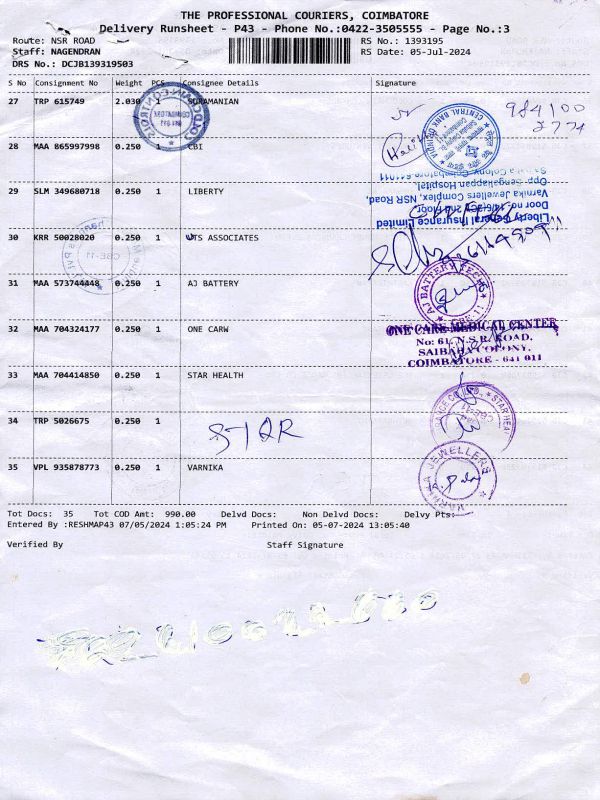 THE PROFESSIONAL COURIERS, COIMBATORE
Delivery Runsheet - P43 - Phone No.:0422-3505555 - Page No.:3
Route: NSR ROAD RS No.: 1393195
Staff: NAGENDRAN RS Date: 05-Jul-2024
DRS No.: DCJB139319503
S No Consignment No Weight PCS Consignee Details Signature
27 TRP 615749 2.030 1 SUKAMANIAN
984100
2774
CENTRAL BANK OF INDIA
28 MAA 865997998 0.250 1 CBI
29 SLM 349680718 0.250 1 LIBERTY
Liberty General Insurance Limited
2nd Floor,
Varnika Jewellers Complex, NSR Road,
Opp. Sengaliappan Hospital,
Saibaba Colony, Coimbatore-641011
30 KRR 50028020 0.250 1 UTS ASSOCIATES
31 MAA 573744448 0.250 1 AJ BATTERY
AJ BATTERY
32 MAA 704324177 0.250 1 ONE CARW
ONE CARE MEDICAL CENTER
No: 61, N.S.R. ROAD,
SAIBABA COLONY,
COIMBATORE - 641 011
33 MAA 704414850 0.250 1 STAR HEALTH
34 TRP 5026675 0.250 1
STAR
35 VPL 935878773 0.250 1 VARNIKA
VARNIKA JEWELLERS
Tot Docs: 35 Tot COD Amt: 990.00 Delvd Docs: Non Delvd Docs: Delvy Pts:
Entered By :RESHMAP43 07/05/2024 1:05:24 PM Printed On: 05-07-2024 13:05:40
Verified By Staff Signature